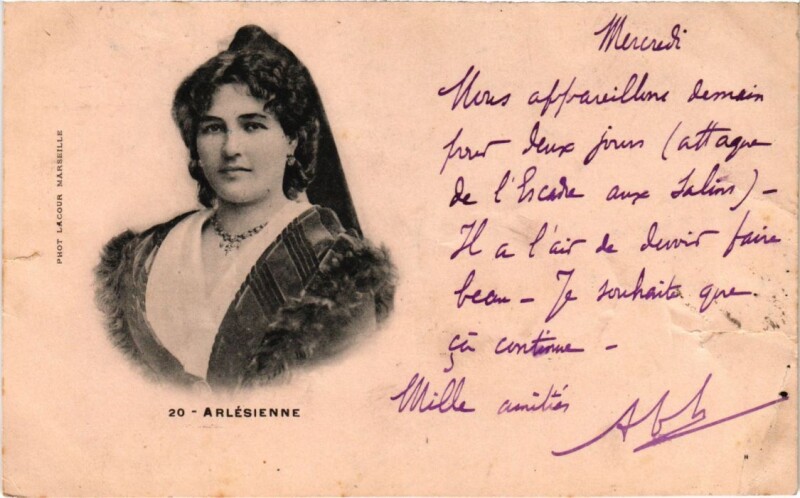 PHOT LACOUR MARSEILLE
20 - ARLÉSIENNE
Mercredi
Nous appareillons demain
pour deux jours (attaque
de l'Escadre aux Salins) -
Il a l'air de devoir faire
beau - Je souhaite que
ça continue -
Mille amitiés